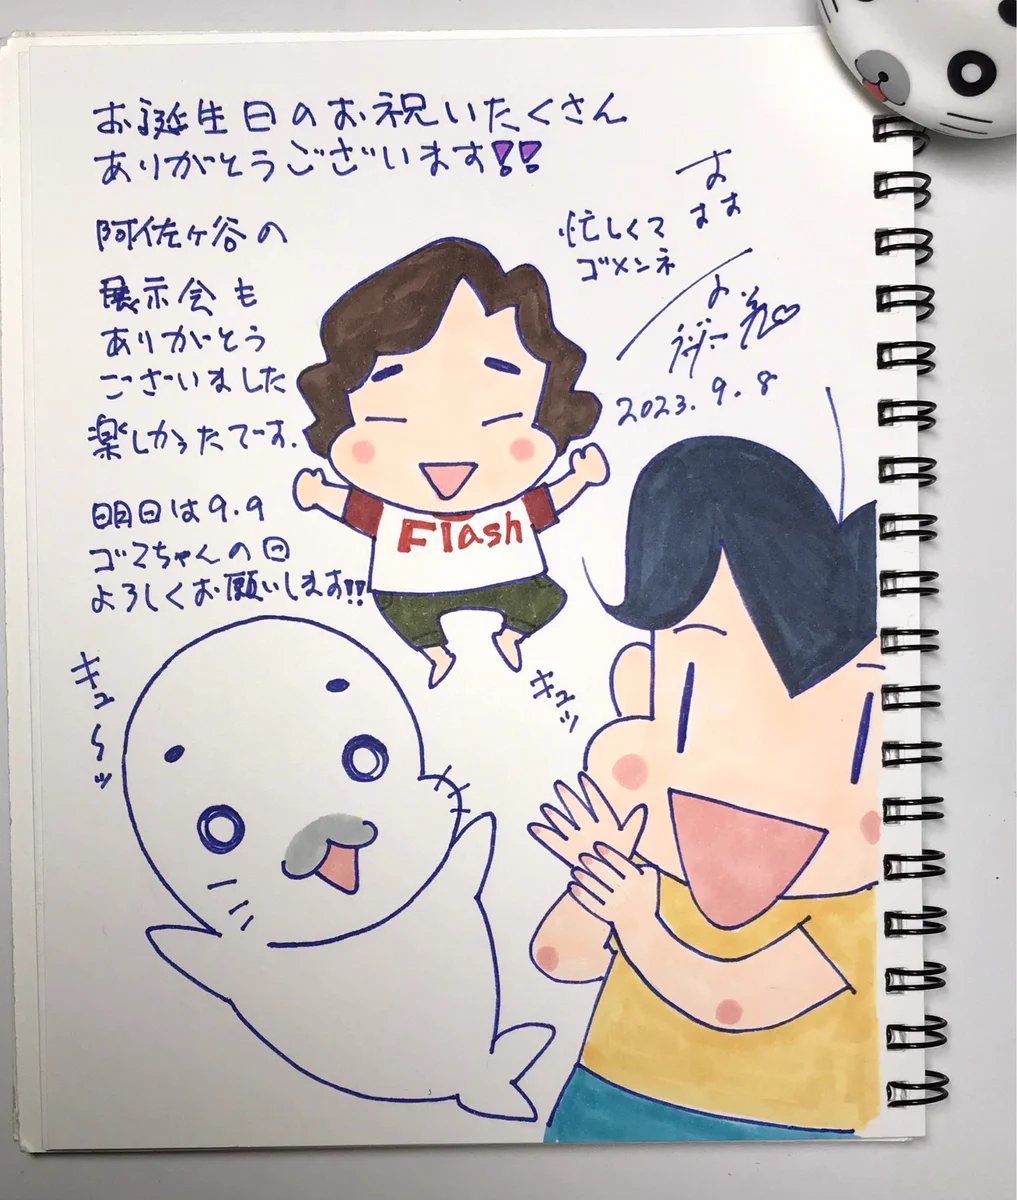 お誕生日のお祝いたくさん
ありがとうございます!!
阿佐ヶ谷の
展示会も
ありがとう
ございました
楽しかったです.
明日は9.9
ゴマちゃんの日
よろしくお願いします!!
忙しくて
ゴメンネ
2023.9.8
Flash
キューッ
キュッ